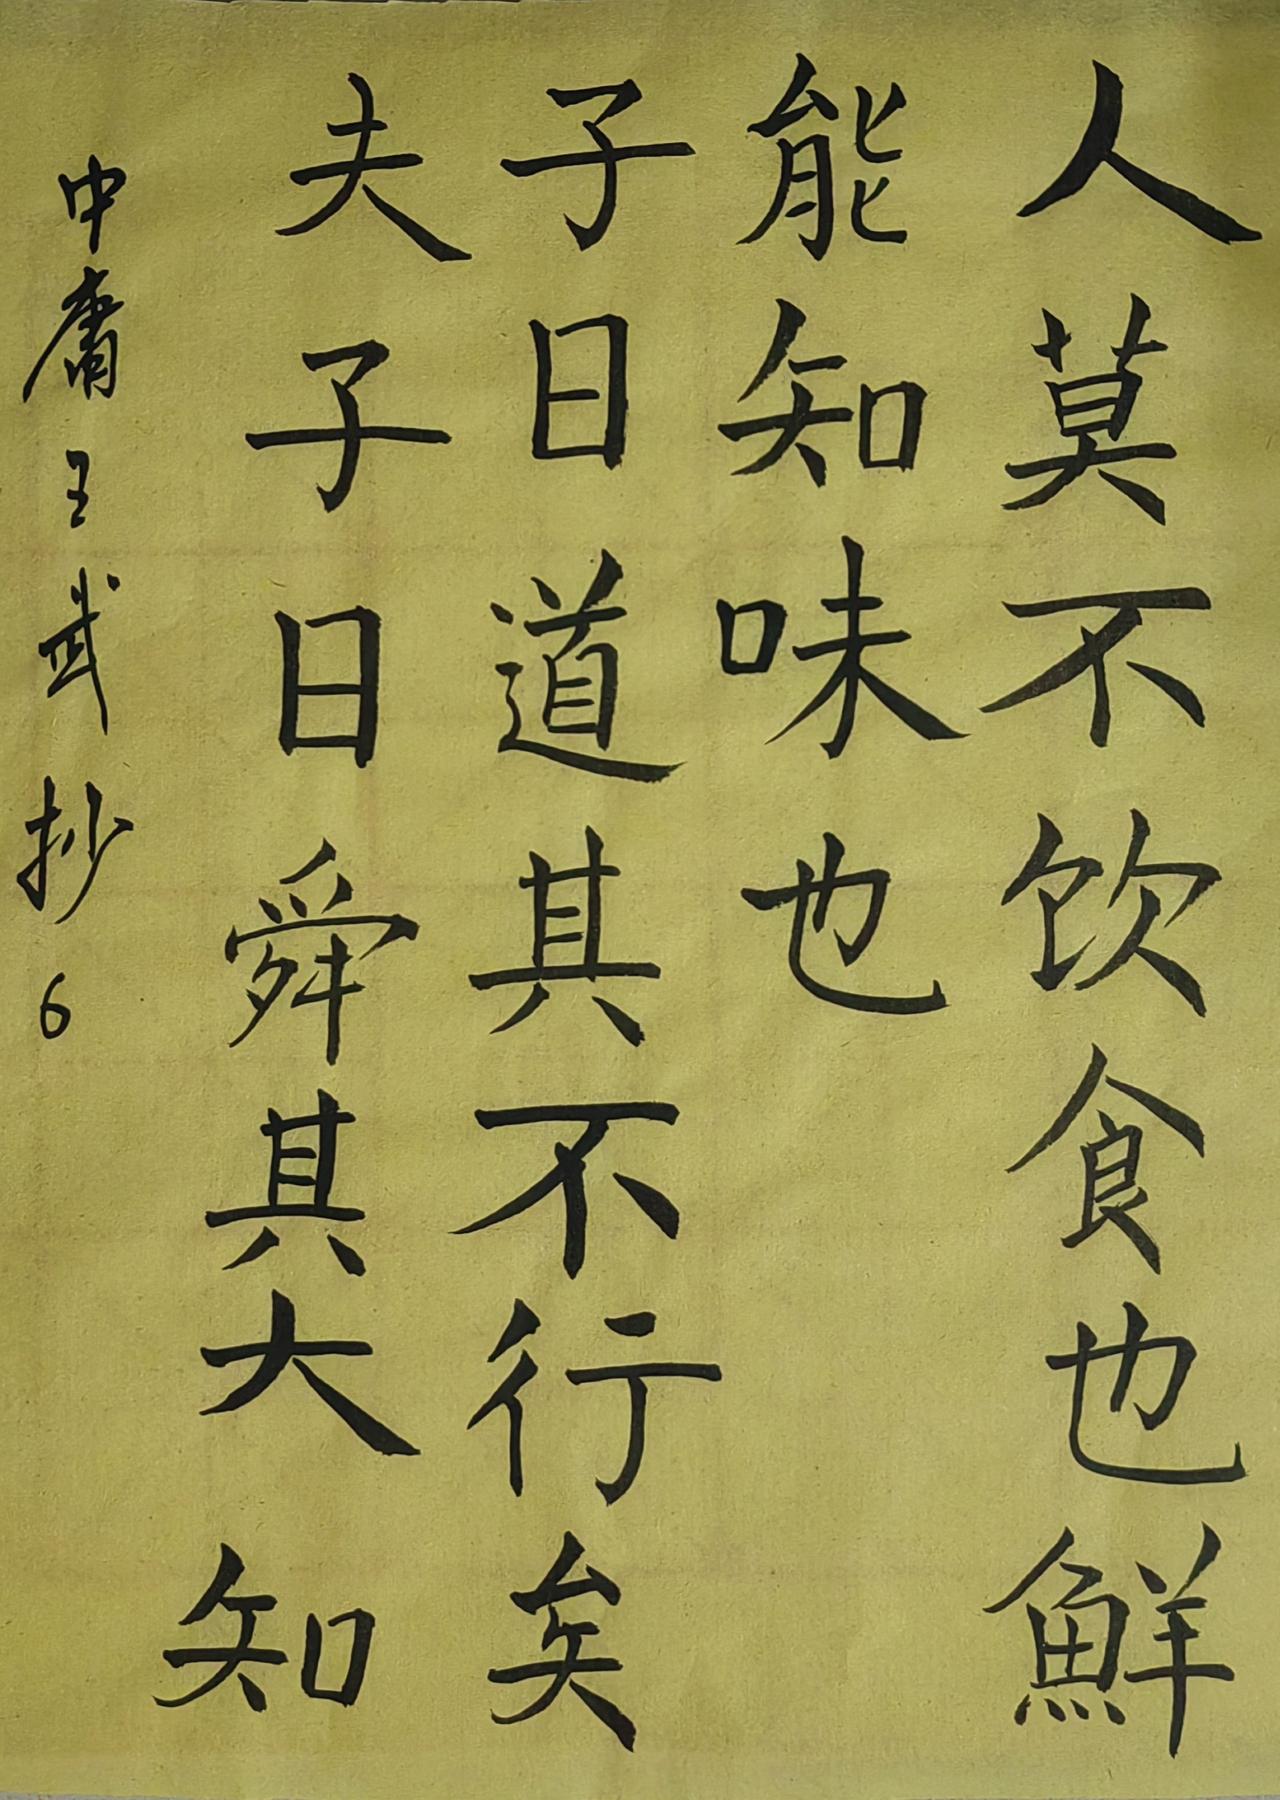 人莫不饮食也鮮
能知味也
子曰道其不行矣
夫子曰舜其大知
中庸王武抄6